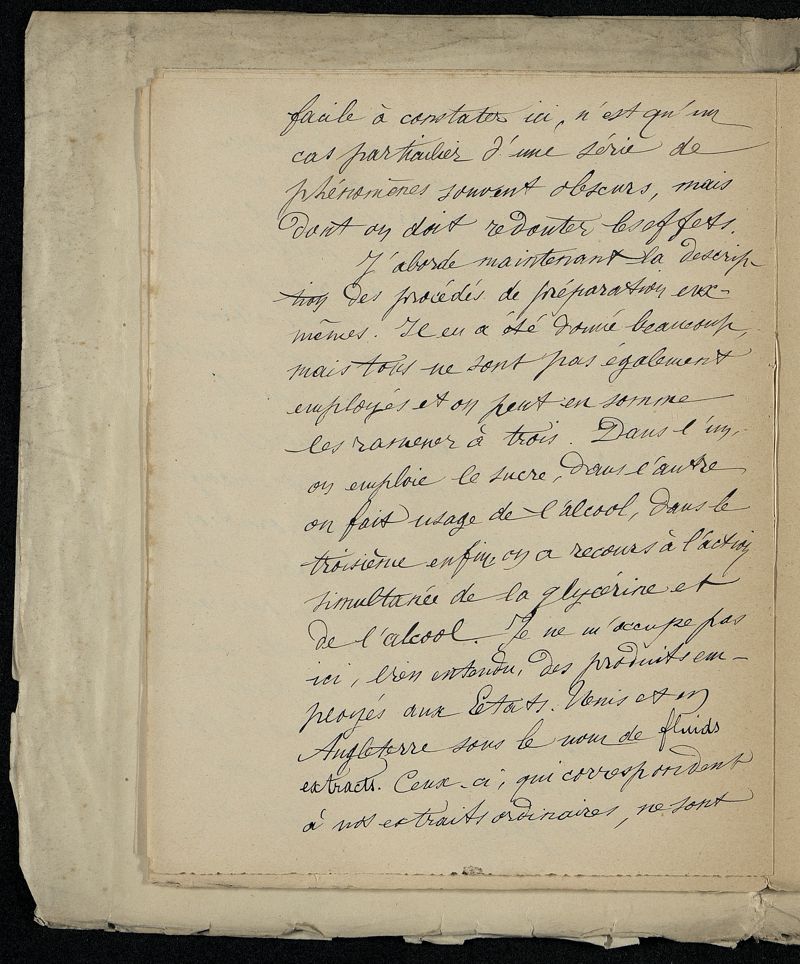 facile à constater ici, n'est qu'un
cas particulier d'une série de
phénomènes souvent obscurs, mais
dont on doit redouter les effets.
J'aborde maintenant la descrip-
tion des procédés de préparation eux-
mêmes. Il en a été donné beaucoup,
mais tous ne sont pas également
employés et on peut en somme
les ramener à trois. Dans l'un,
on emploie le sucre, dans l'autre
on fait usage de l'alcool, dans le
troisième enfin, on a recours à l'action
simultanée de la glycérine et
de l'alcool. Je ne m'occupe pas
ici, bien entendu, des produits em-
ployés aux Etats-Unis et en
Angleterre sous le nom de fluids
extracts. Ceux-ci, qui correspondent
à nos extraits ordinaires, ne sont